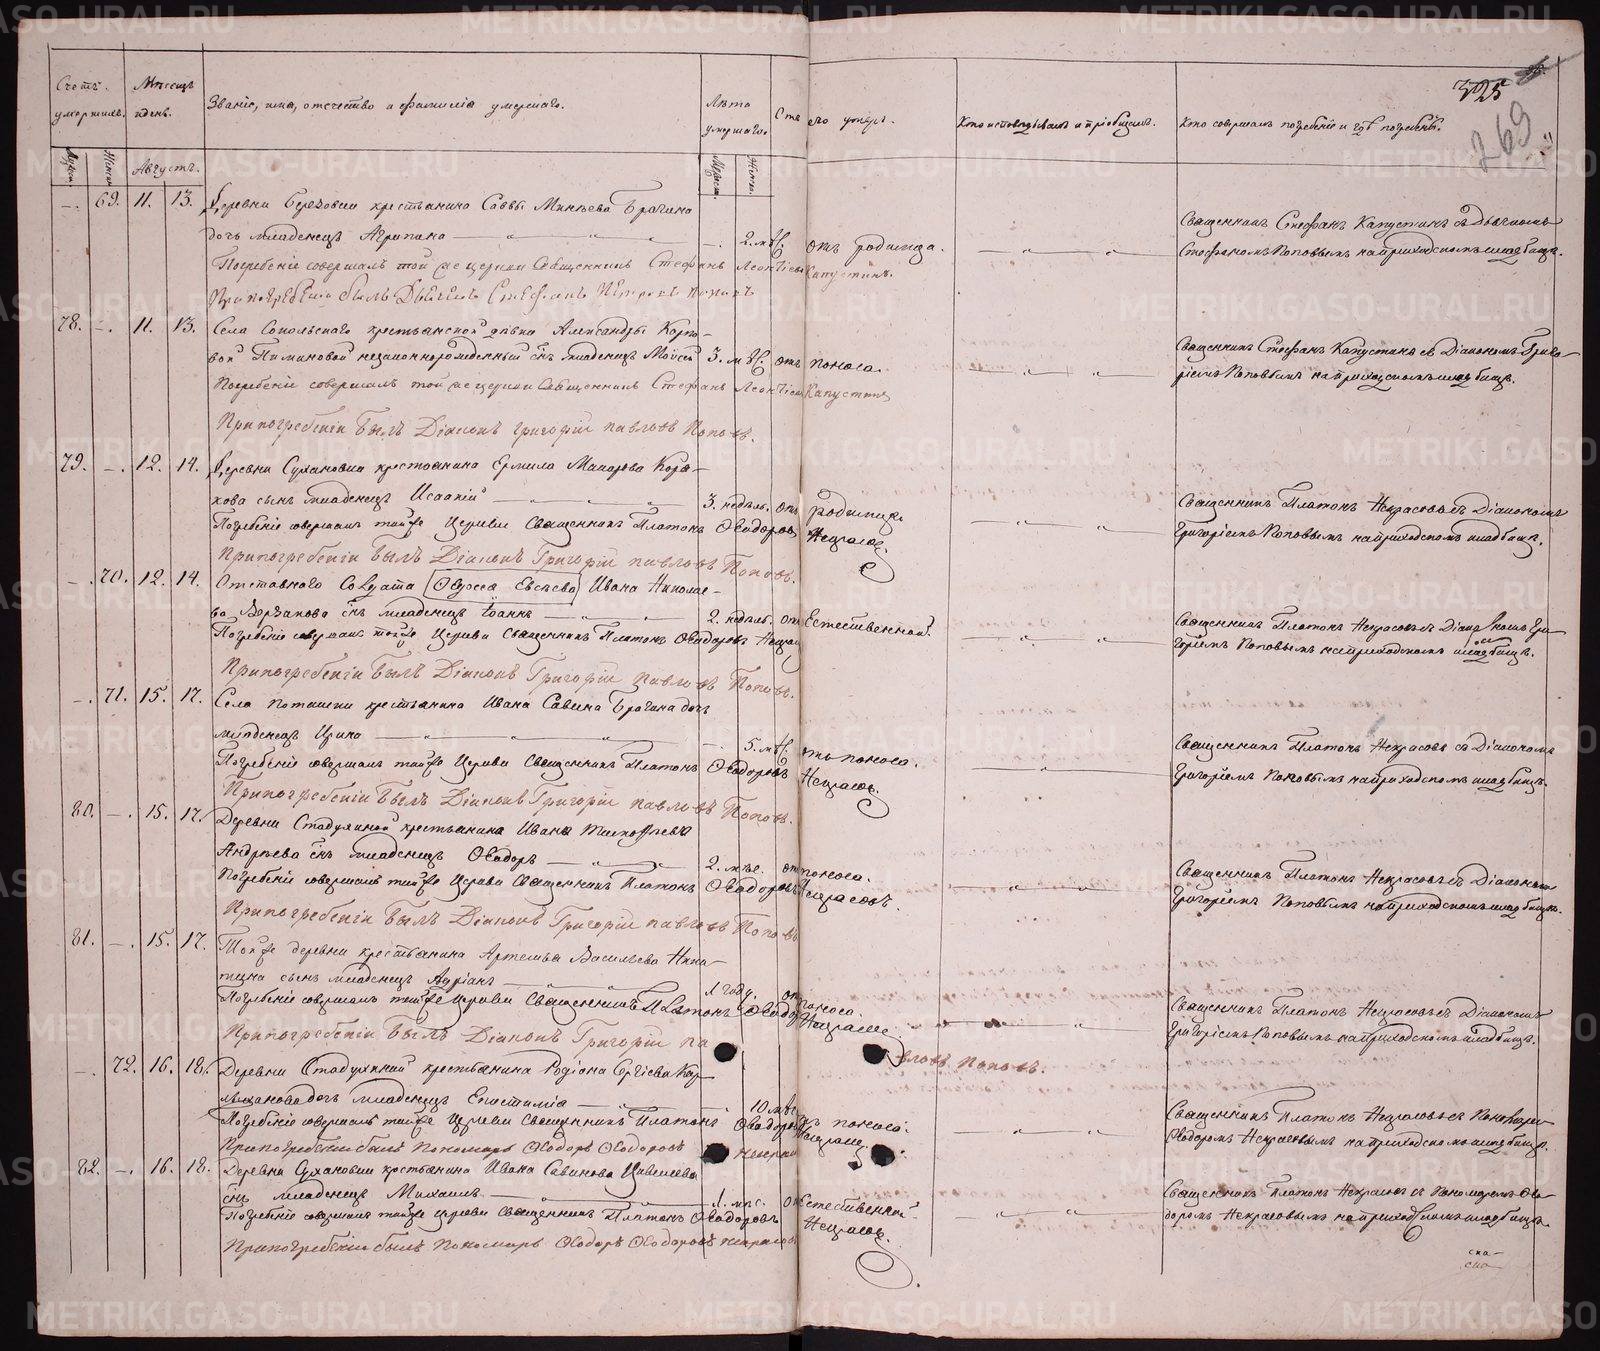 METRIKI.GASO-URAL.RU
325
269
Счетъ умершихъ.
Мѣсяцъ и день.
Званіе, имя, отчество и фамилія умершаго.
Лѣта умершаго.
Отъ чего умеръ.
Кто исповѣдывалъ и пріобщалъ.
Кто совершалъ погребеніе и гдѣ погребены.
Августъ.
69. 11. 13. Деревни крестьянина Саввы Брагина
дочь младенецъ Агрипина 2. мѣс. отъ родимца.
Священникъ Стефанъ Капустинъ съ Дьячкомъ
Стефаномъ Поповымъ на приходскомъ кладбищѣ.
Погребеніе совершалъ той же церкви Священникъ Стефанъ Леонтіевъ Капустинъ.
При погребеніи былъ Дьячекъ Стефанъ Петровъ Поповъ
78. 11. 13. Села Сокольскаго крестьянской дѣвки Александры Карпо-
вой Пимановой незаконнорожденный сынъ младенецъ Моисей 3. мѣс. отъ поноса.
Священникъ Стефанъ Капустинъ съ Діакономъ Григо-
ріемъ Поповымъ на приходскомъ кладбищѣ.
Погребеніе совершалъ той же церкви Священникъ Стефанъ Леонтіевъ Капустинъ
При погребеніи былъ Діаконъ Григорій Павловъ Поповъ.
79. 12. 14. Деревни Сухановки крестьянина Ермила Макарова
сынъ младенецъ Исаакій 3. недѣль. отъ родимца.
Священникъ Платонъ Некрасовъ съ Діакономъ
Григоріемъ Поповымъ на приходскомъ кладбищѣ.
Погребеніе совершалъ той же Церкви Священникъ Платонъ Ѳеодоровъ Некрасовъ.
При погребеніи былъ Діаконъ Григорій Павловъ Поповъ.
70. 12. 14. Отставного Солдата Ивана Николае-
ва сынъ младенецъ Іоаннъ 2. недѣль. отъ Естественной.
Священникъ Платонъ Некрасовъ съ Діакономъ Гри-
горіемъ Поповымъ на приходскомъ кладбищѣ.
Погребеніе совершалъ той же Церкви Священникъ Платонъ Ѳеодоровъ
При погребеніи былъ Діаконъ Григорій Павловъ Поповъ.
71. 15. 17. Села Поташки крестьянина Ивана Савина Брагина дочь
младенецъ Ирина 5. мѣс. отъ поноса.
Священникъ Платонъ Некрасовъ съ Діакономъ
Григоріемъ Поповымъ на приходскомъ кладбищѣ.
Погребеніе совершалъ той же Церкви Священникъ Платонъ Ѳеодоровъ Некрасовъ.
При погребеніи былъ Діаконъ Григорій Павловъ Поповъ.
80. 15. 17. Деревни крестьянина Ивана
Андреева сынъ младенецъ Ѳеодоръ 2. мѣс. отъ поноса.
Священникъ Платонъ Некрасовъ съ Діакономъ
Григоріемъ Поповымъ на приходскомъ кладбищѣ.
Погребеніе совершалъ той же Церкви Священникъ Платонъ Ѳеодоровъ Некрасовъ.
При погребеніи былъ Діаконъ Григорій Павловъ Поповъ
81. 15. 17. Той же деревни крестьянина Артемья Васильева Ники-
тина сынъ младенецъ Адріанъ 1 году. отъ поноса.
Священникъ Платонъ Некрасовъ съ Діакономъ
Григоріемъ Поповымъ на приходскомъ кладбищѣ.
Погребеніе совершалъ той же Церкви Священникъ Платонъ
При погребеніи былъ Діаконъ Григорій Павловъ Поповъ.
72. 16. 18. Деревни крестьянина Родіона Сергіева
дочь младенецъ Епистимія 10 мѣс. отъ поноса.
Священникъ Платонъ Некрасовъ съ Пономаремъ
Ѳеодоромъ Некрасовымъ на приходскомъ кладбищѣ.
Погребеніе совершалъ той же Церкви Священникъ Платонъ Ѳеодоровъ
При погребеніи былъ Пономарь Ѳеодоръ Ѳеодоровъ
82. 16. 18. Деревни Сухановки крестьянина Ивана Савинова
сынъ младенецъ Михаилъ 1. мѣс. отъ Естественной.
Священникъ Платонъ Некрасовъ съ Пономаремъ Ѳео-
доромъ Некрасовымъ на приходскомъ кладбищѣ.
Погребеніе совершалъ той же Церкви Священникъ Платонъ Ѳеодоровъ Некрасовъ.
При погребеніи былъ Пономарь Ѳеодоръ Ѳеодоровъ Некрасовъ